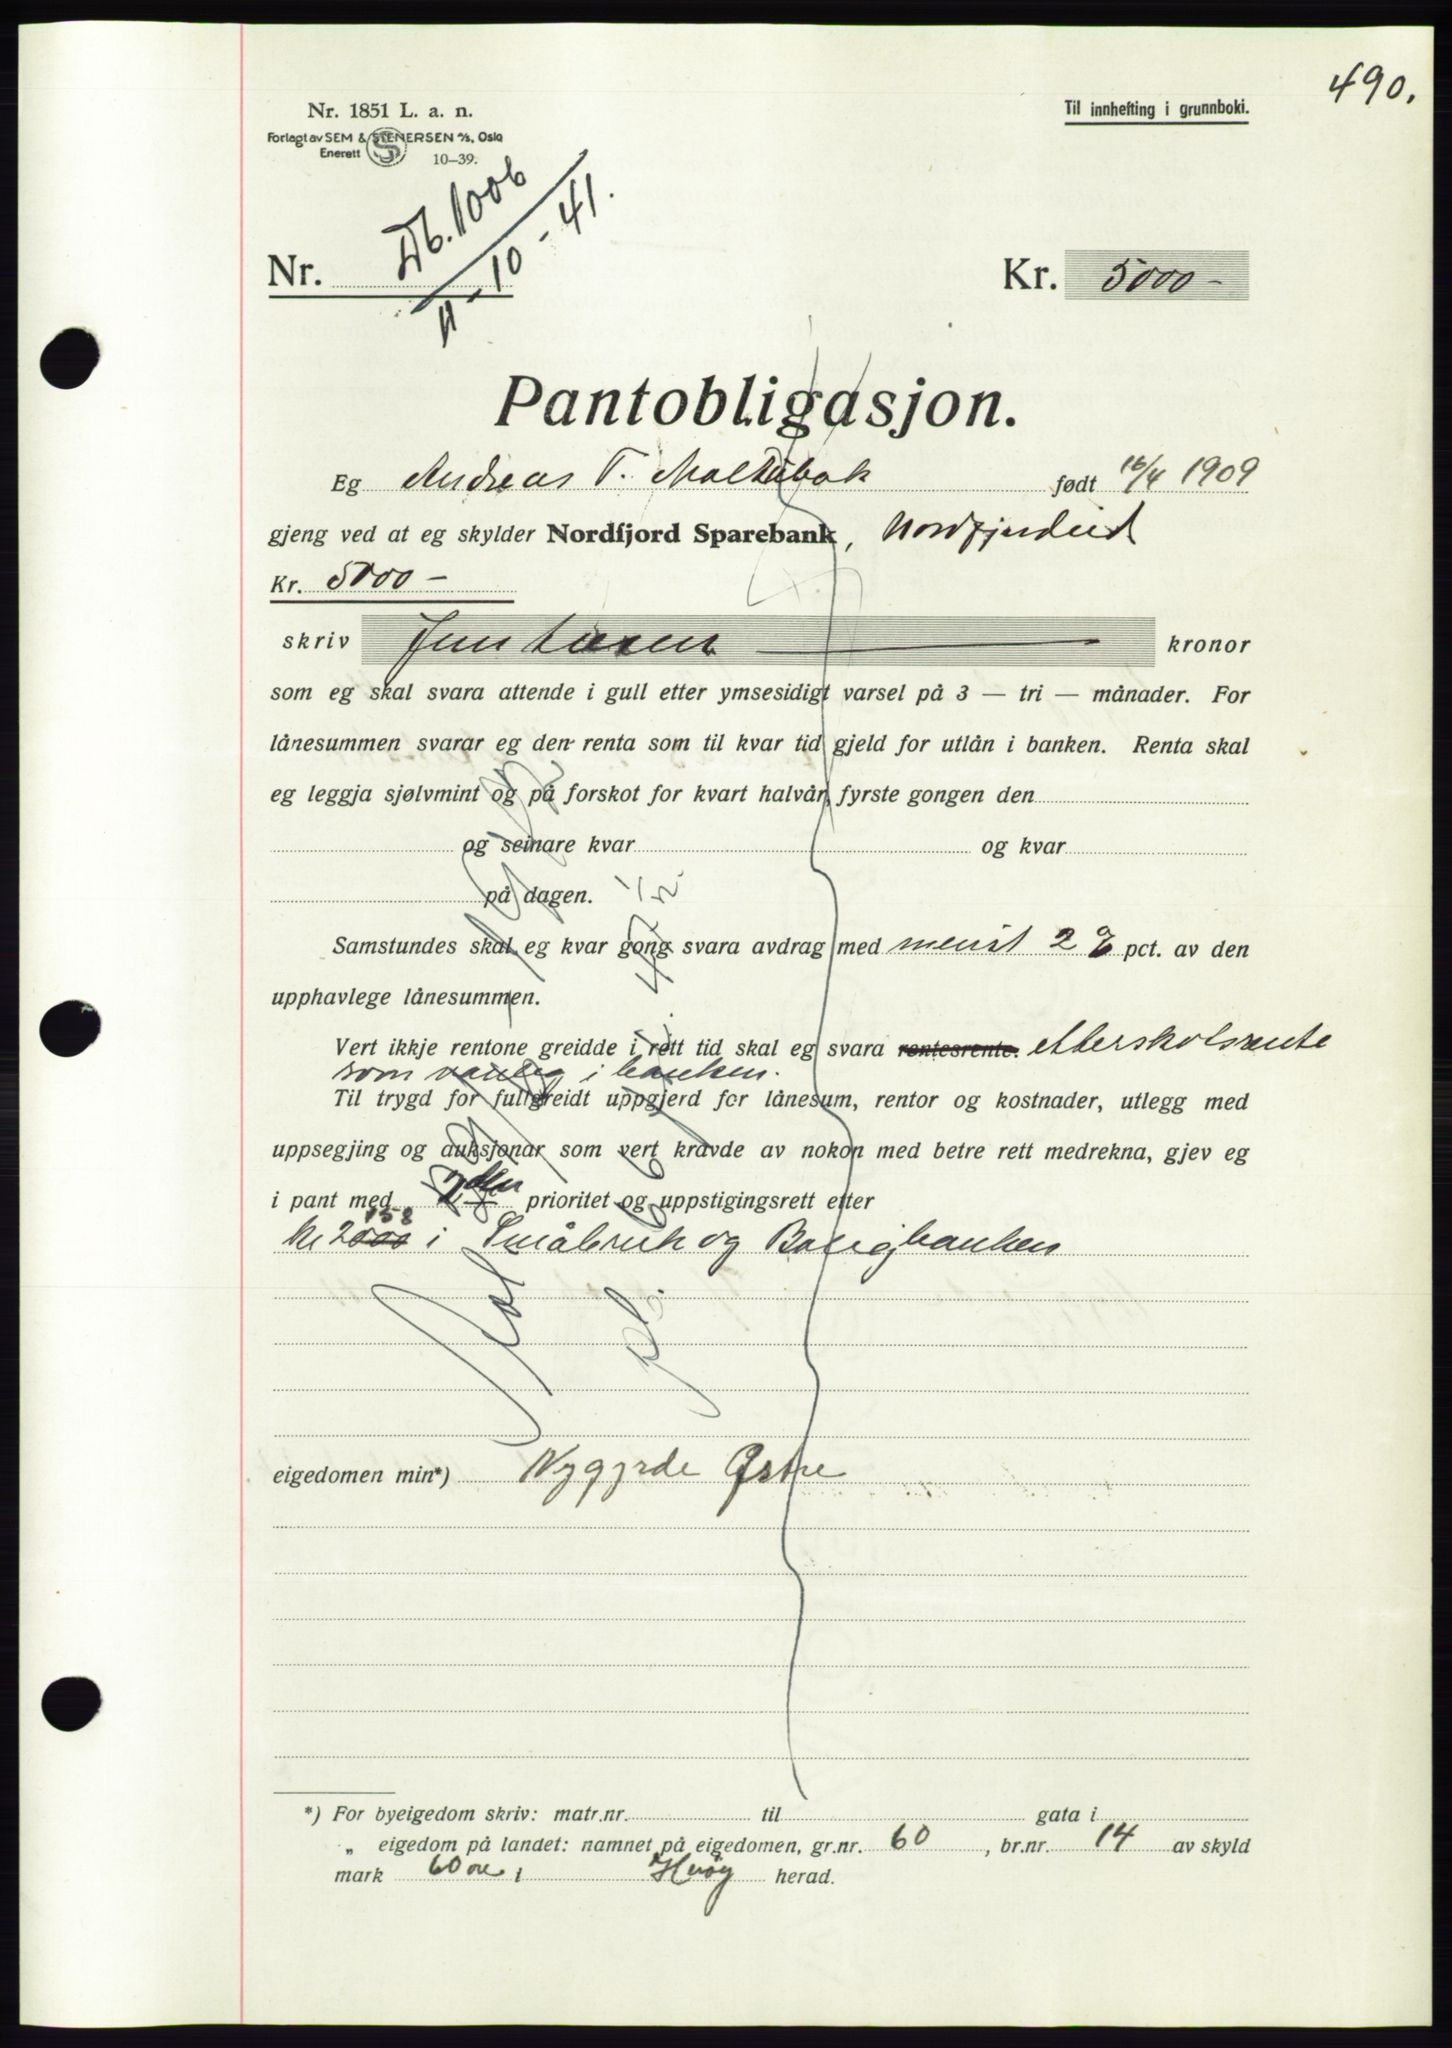 490.
Nr. 1851 L. a. n.
Til innhefting i grunnboki.
Forlagt av SEM & STENERSEN A/S, Oslo
Enerett S 10–39.
Db. 1006
11-10-41.
Nr.
Kr. 5000 –
Pantobligasjon.
Eg Andreas T. født 16/4 1909
gjeng ved at eg skylder Nordfjord Sparebank, Nordfjordeid
Kr. 5000 –
skriv Fem tusen kronor
som eg skal svara attende i gull etter ymsesidigt varsel på 3 — tri — månader. For
lånesummen svarar eg den renta som til kvar tid gjeld for utlån i banken. Renta skal
eg leggja sjølvmint og på forskot for kvart halvår, fyrste gongen den
og seinare kvar og kvar
på dagen.
Samstundes skal eg kvar gong svara avdrag med minst 2 % pct. av den
upphavlege lånesummen.
Vert ikkje rentone greidde i rett tid skal eg svara rentesrente. etterskotsrente
som vanleg i banken.
Til trygd for fullgreidt uppgjerd for lånesum, rentor og kostnader, utlegg med
uppsegjing og auksjonar som vert kravde av nokon med betre rett medrekna, gjev eg
i pant med 2den prioritet og uppstigingsrett etter
158
kr 2000 i Småbruk og Bustigbanken
eigedomen min*) Nygjrde Østre
*) For byeigedom skriv: matr.nr. til gata i
„ eigedom på landet: namnet på eigedomen, gr.nr. 60, br.nr. 14 av skyld
mark 60 øre i Herøy herad.